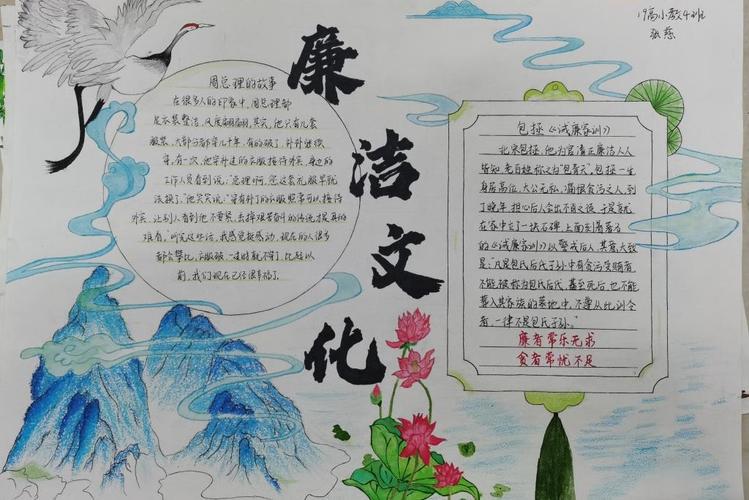 19高小教4班
张慈
廉洁文化
周总理的故事
在很多人的印象中,周总理都
是衣装整洁,风度翩翩,其实,他只有几套
服装,大部分都穿几十年,有的破了,补补继续
穿,有一次,他穿补过的衣服接待外宾,身边的
工作人员看到说:"总理啊,您这套礼服早就
该换了."他笑笑说:"穿有补丁的衣服照常可以接待
外宾,
难看."听完这些话,我感觉挺感动,现在的人很多
都会攀比,
前,我们现在已经很幸福了.
包拯《诫廉家训》
北宋包拯,他为官清正廉洁人人
皆知,老百姓称之为"包青天",包拯一生
身居高位,大公无私,痛恨贪污之人,到
了晚年,担心后人会出不肖之徒,于是就
在家中立了一块石碑,上面刻着著名
的《诫廉家训》以警戒后人,其意大致
是:"凡是包氏后代子孙中有贪污受贿者
不能被称为包氏后代,甚至死后,也不能
葬入其家族的墓地中,不遵从此训令
者,一律不是包氏子孙."
廉者常乐无求
贪者常忧不足